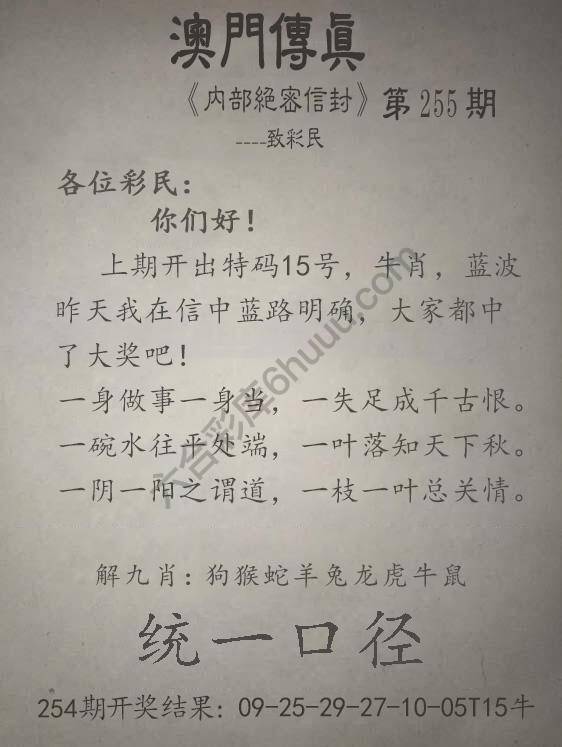 澳門傳眞
《内部絕密信封》第255期
----致彩民
各位彩民：
你们好！
上期开出特码15号，牛肖，蓝波
昨天我在信中蓝路明确，大家都中
了大奖吧！
一身做事一身当，一失足成千古恨。
一碗水往平处端，一叶落知天下秋。
一阴一阳之谓道，一枝一叶总关情。
六合彩库6huuu.com
解九肖：狗猴蛇羊兔龙虎牛鼠
统一口径
254期开奖结果：09-25-29-27-10-05T15牛